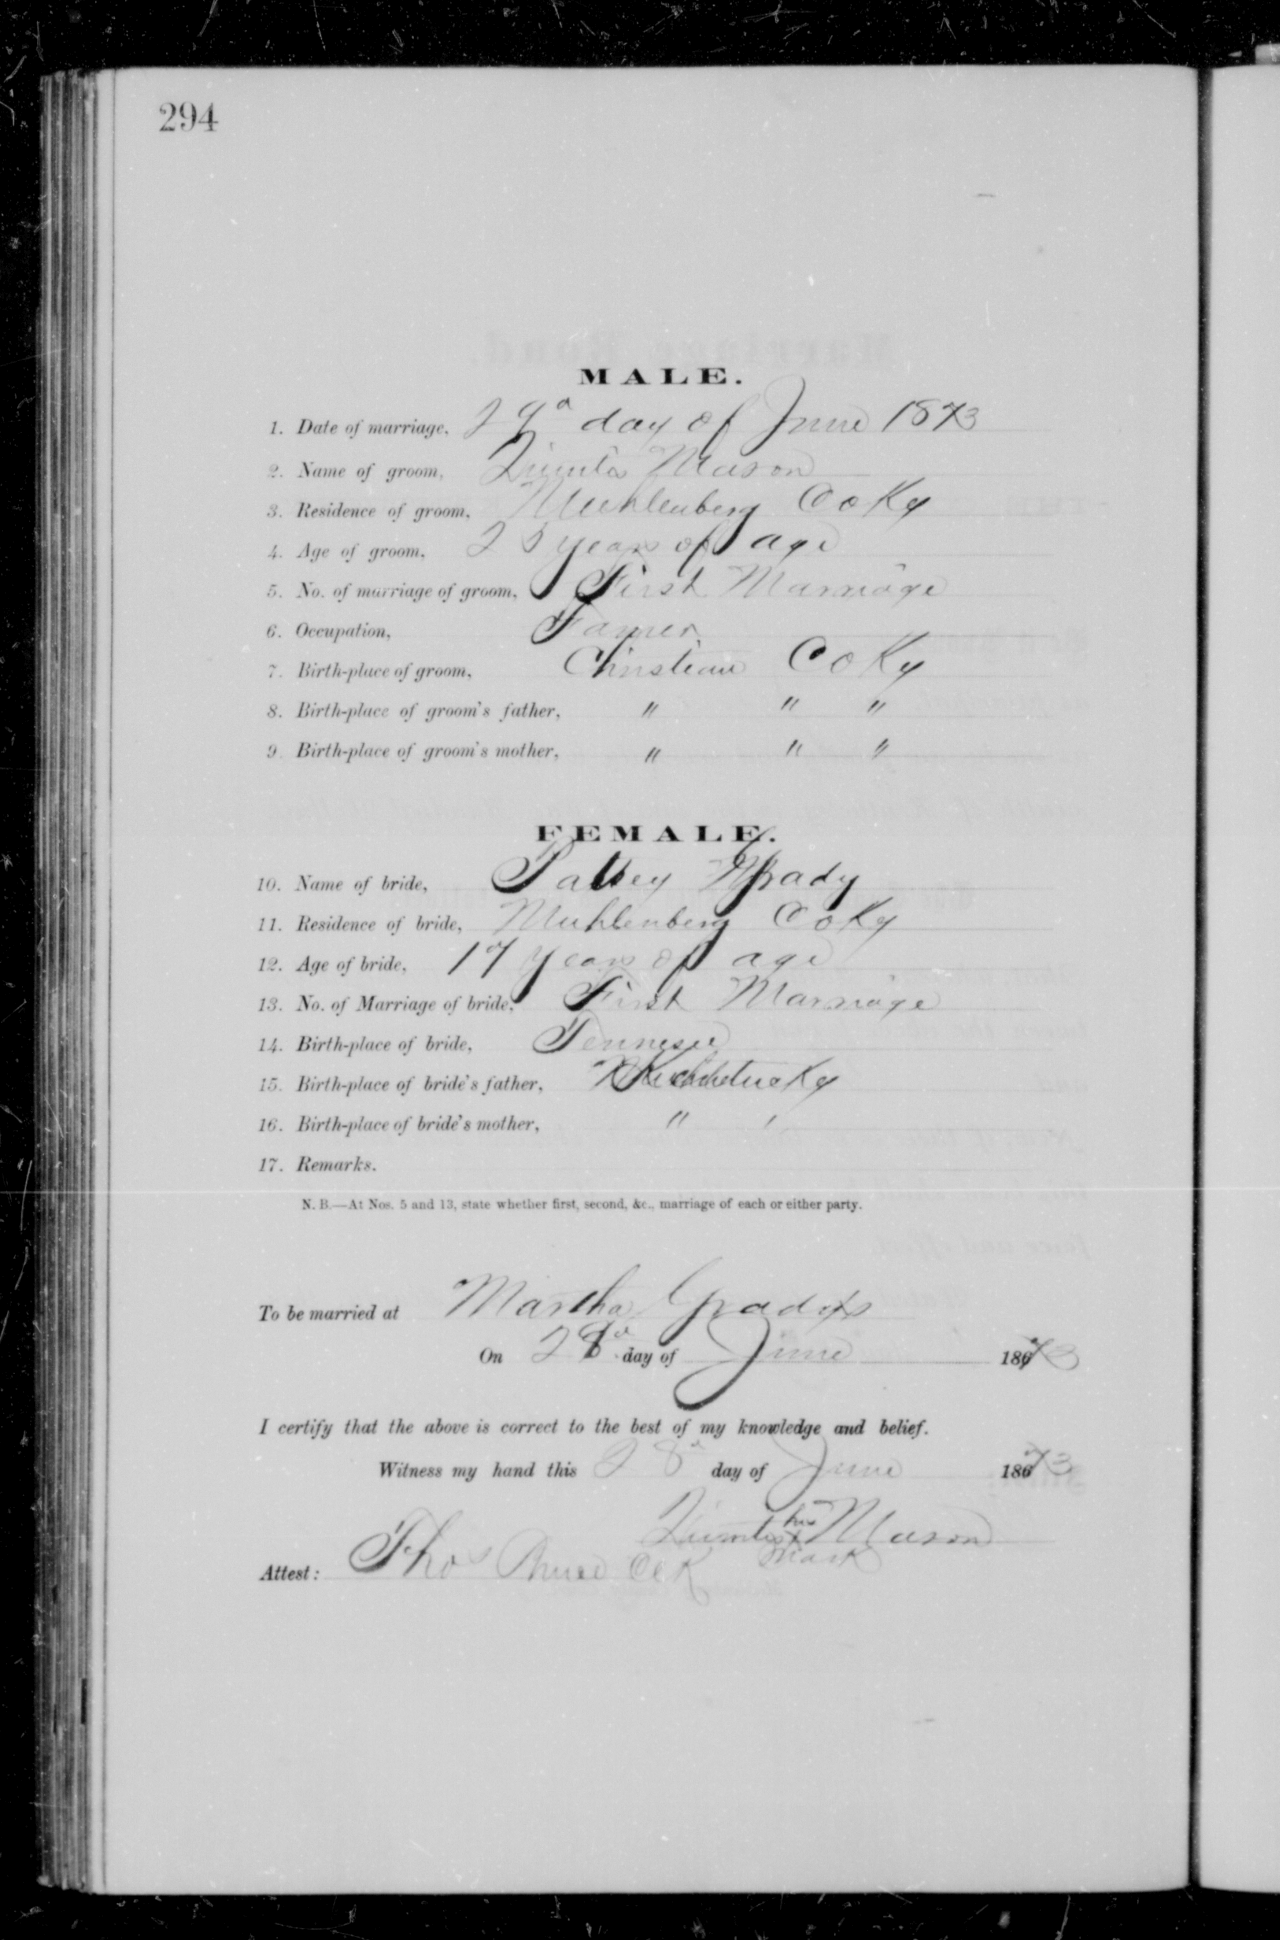 294
MALE.
1. Date of marriage, 29th day of June 1873
2. Name of groom, Mason
3. Residence of groom, Muhlenberg Co Ky
4. Age of groom, 25 years of age
5. No. of marriage of groom, First Marriage
6. Occupation, Farmer
7. Birth-place of groom, Christian Co Ky
8. Birth-place of groom's father, " " "
9. Birth-place of groom's mother, " " "
FEMALE.
10. Name of bride, Patsey Grady
11. Residence of bride, Muhlenberg Co Ky
12. Age of bride, 17 years of age
13. No. of Marriage of bride, First Marriage
14. Birth-place of bride, Tennesee
15. Birth-place of bride's father, Kentucky
16. Birth-place of bride's mother, " "
17. Remarks.
N. B.—At Nos. 5 and 13, state whether first, second, &c., marriage of each or either party.
To be married at Martha Gradys
On 28th day of June 1873
I certify that the above is correct to the best of my knowledge and belief.
Witness my hand this 28th day of June 1873
his
x Mason
mark
Attest: Thos Bruce Clk